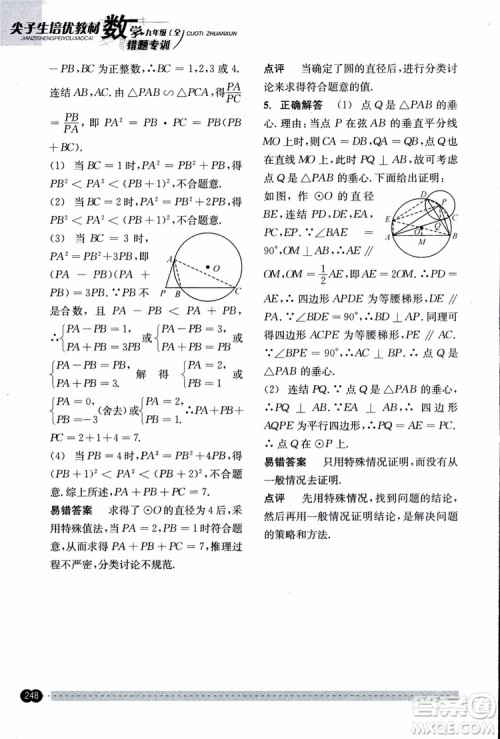 尖子生培优教材 数学 九年级(全) CUOTI ZHUANXUN
JIANZISHENGPEIYOUJIAOCAI 错题专训
-PB,BC为正整数,∴BC=1,2,3或4.
连结AB,AC.∵△PAB∽△PCA,得PA/PC
=PB/PA,即PA²=PB·PC=PB(PB+
BC).
(1) 当BC=1时,PA²=PB²+PB,∴
PB²<PA²<(PB+1)²,不合题意.
(2) 当BC=2时,PA²=PB²+2PB,∴
PB²<PA²<(PB+1)²,不合题意.
(3) 当BC=3时,
PA²=PB²+3PB,即
(PA+PB)(PA-
PB)=3PB.∵PB不
是合数,且PA与PB均为正整数,
∴{PA-PB=1, PA+PB=3PB 或{PA-PB=3, PA+PB=PB 或
{PA-PB=PB, PA+PB=3. 解得{PA=2, PB=1 或
{PA=0, PB=3 (舍去)或{PA=2, PB=1. ∴PA=2.
(4) 当BC=4时,PA²=PB²+4PB,∴
(PB+1)²<PA²<(PB+2)²,不合题
意.综上所述,PA=2.
易错答案 求得了⊙O的直径为4后,采用
了特殊值法,当PA=2,PB=1,PC=4
时,满足了PA+PB+PC=7.推理过程
不严密,分类讨论不规范.
点评 当确定了圆的直径后,进行分类讨
论来求得符合题意的值.
5. 正确解答 (1) 点Q是△PAB的垂
心.理由:当点P在弦AB的垂直平分线
MO上时,则CA=DB,CA⊥PB,∴Q也
在直线MO上,∴PQ⊥AB,故可考虑
点Q是△PAB的垂心.下面给出证明:
如图,作⊙O的直径
BE,连结AE,PC,
PD,DE,EA,
EC.∵∠BAE=
90°,∴OM∥AE
OM,OM=1/2AE.∵AE=2OM,PD=
2OM,∴四边形APDE为等腰梯形,可
得∠BDE=90°,∴BD⊥PA,同理可
得四边形ACPE为等腰梯形,
∠BCE=90°,∴AC⊥PB,∴点Q是
△PAB的垂心.
(2) 连结PQ.∵点Q是△PAB的垂心,
∴PQ⊥AB,∴PQ∥AE,∴四边形
AQPE为平行四边形,∴PQ=AE=
2OM.
易错答案 只用特殊情况证明,而没有从
一般情况去证明.
点评 先用特殊情况,找到问题的结论,
然后再用一般情况证明,是解决问题
的策略和方法.
248